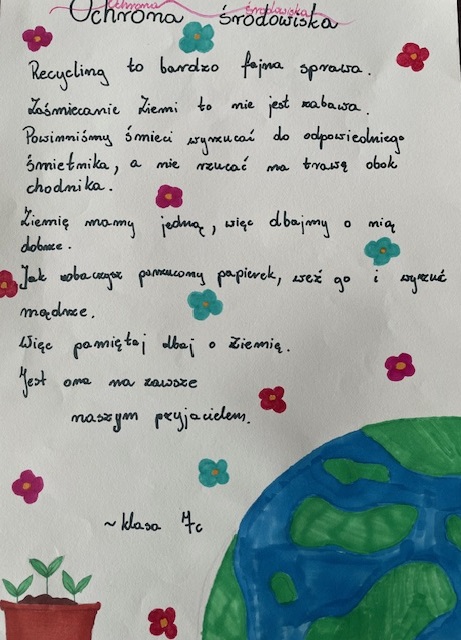 Ochrona środowiska
Ochrona środowiska
Recycling to bardzo fajna sprawa.
Zaśmiecanie Ziemi to nie jest zabawa.
Powinniśmy śmieci wyrzucać do odpowiedniego
śmietnika, a nie rzucać na trawę obok
chodnika.
Ziemię mamy jedną, więc dbajmy o nią
dobrze.
Jak zobaczysz porzucony papierek, weź go i wyrzuć
mądrze.
Więc pamiętaj dbaj o Ziemię.
Jest ona na zawsze
naszym przyjacielem.
~klasa 7c